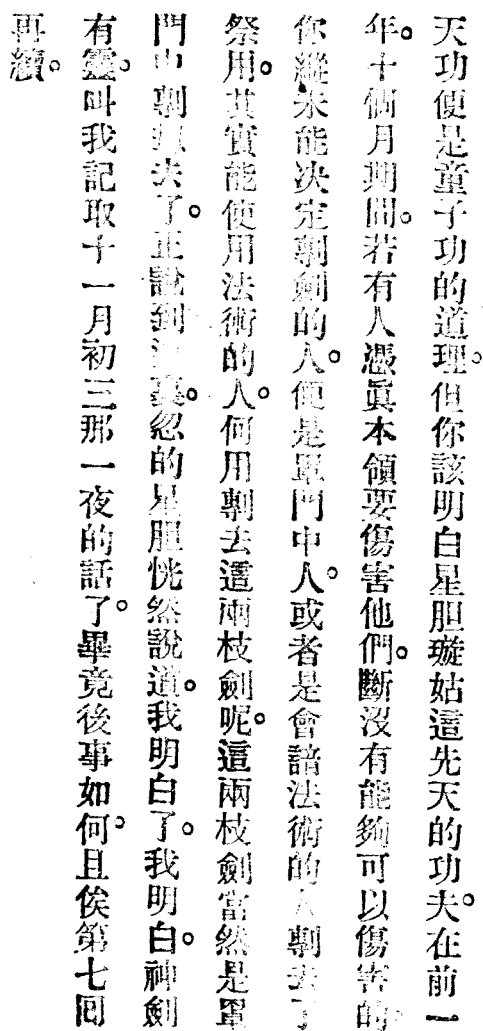 天功便是童子功的道理。但你該明白星胆璇姑這先天的功夫。在前一
年。十個月期間。若有人憑眞本領要傷害他們。斷沒有能夠可以傷害的。
你縱未能决定剸劍的人。便是單門中人。或者是會諳法術的人剸去了
祭用。其實能使用法術的人。何用剸去這兩枝劍呢。這兩枝劍當然是單
門中剸去了。正說到這裏。忽的星胆恍然說道。我明白了。我明白。神劍
有靈。叫我記取十一月初三那一夜的話了。畢竟後事如何。且俟第七囘
再續。